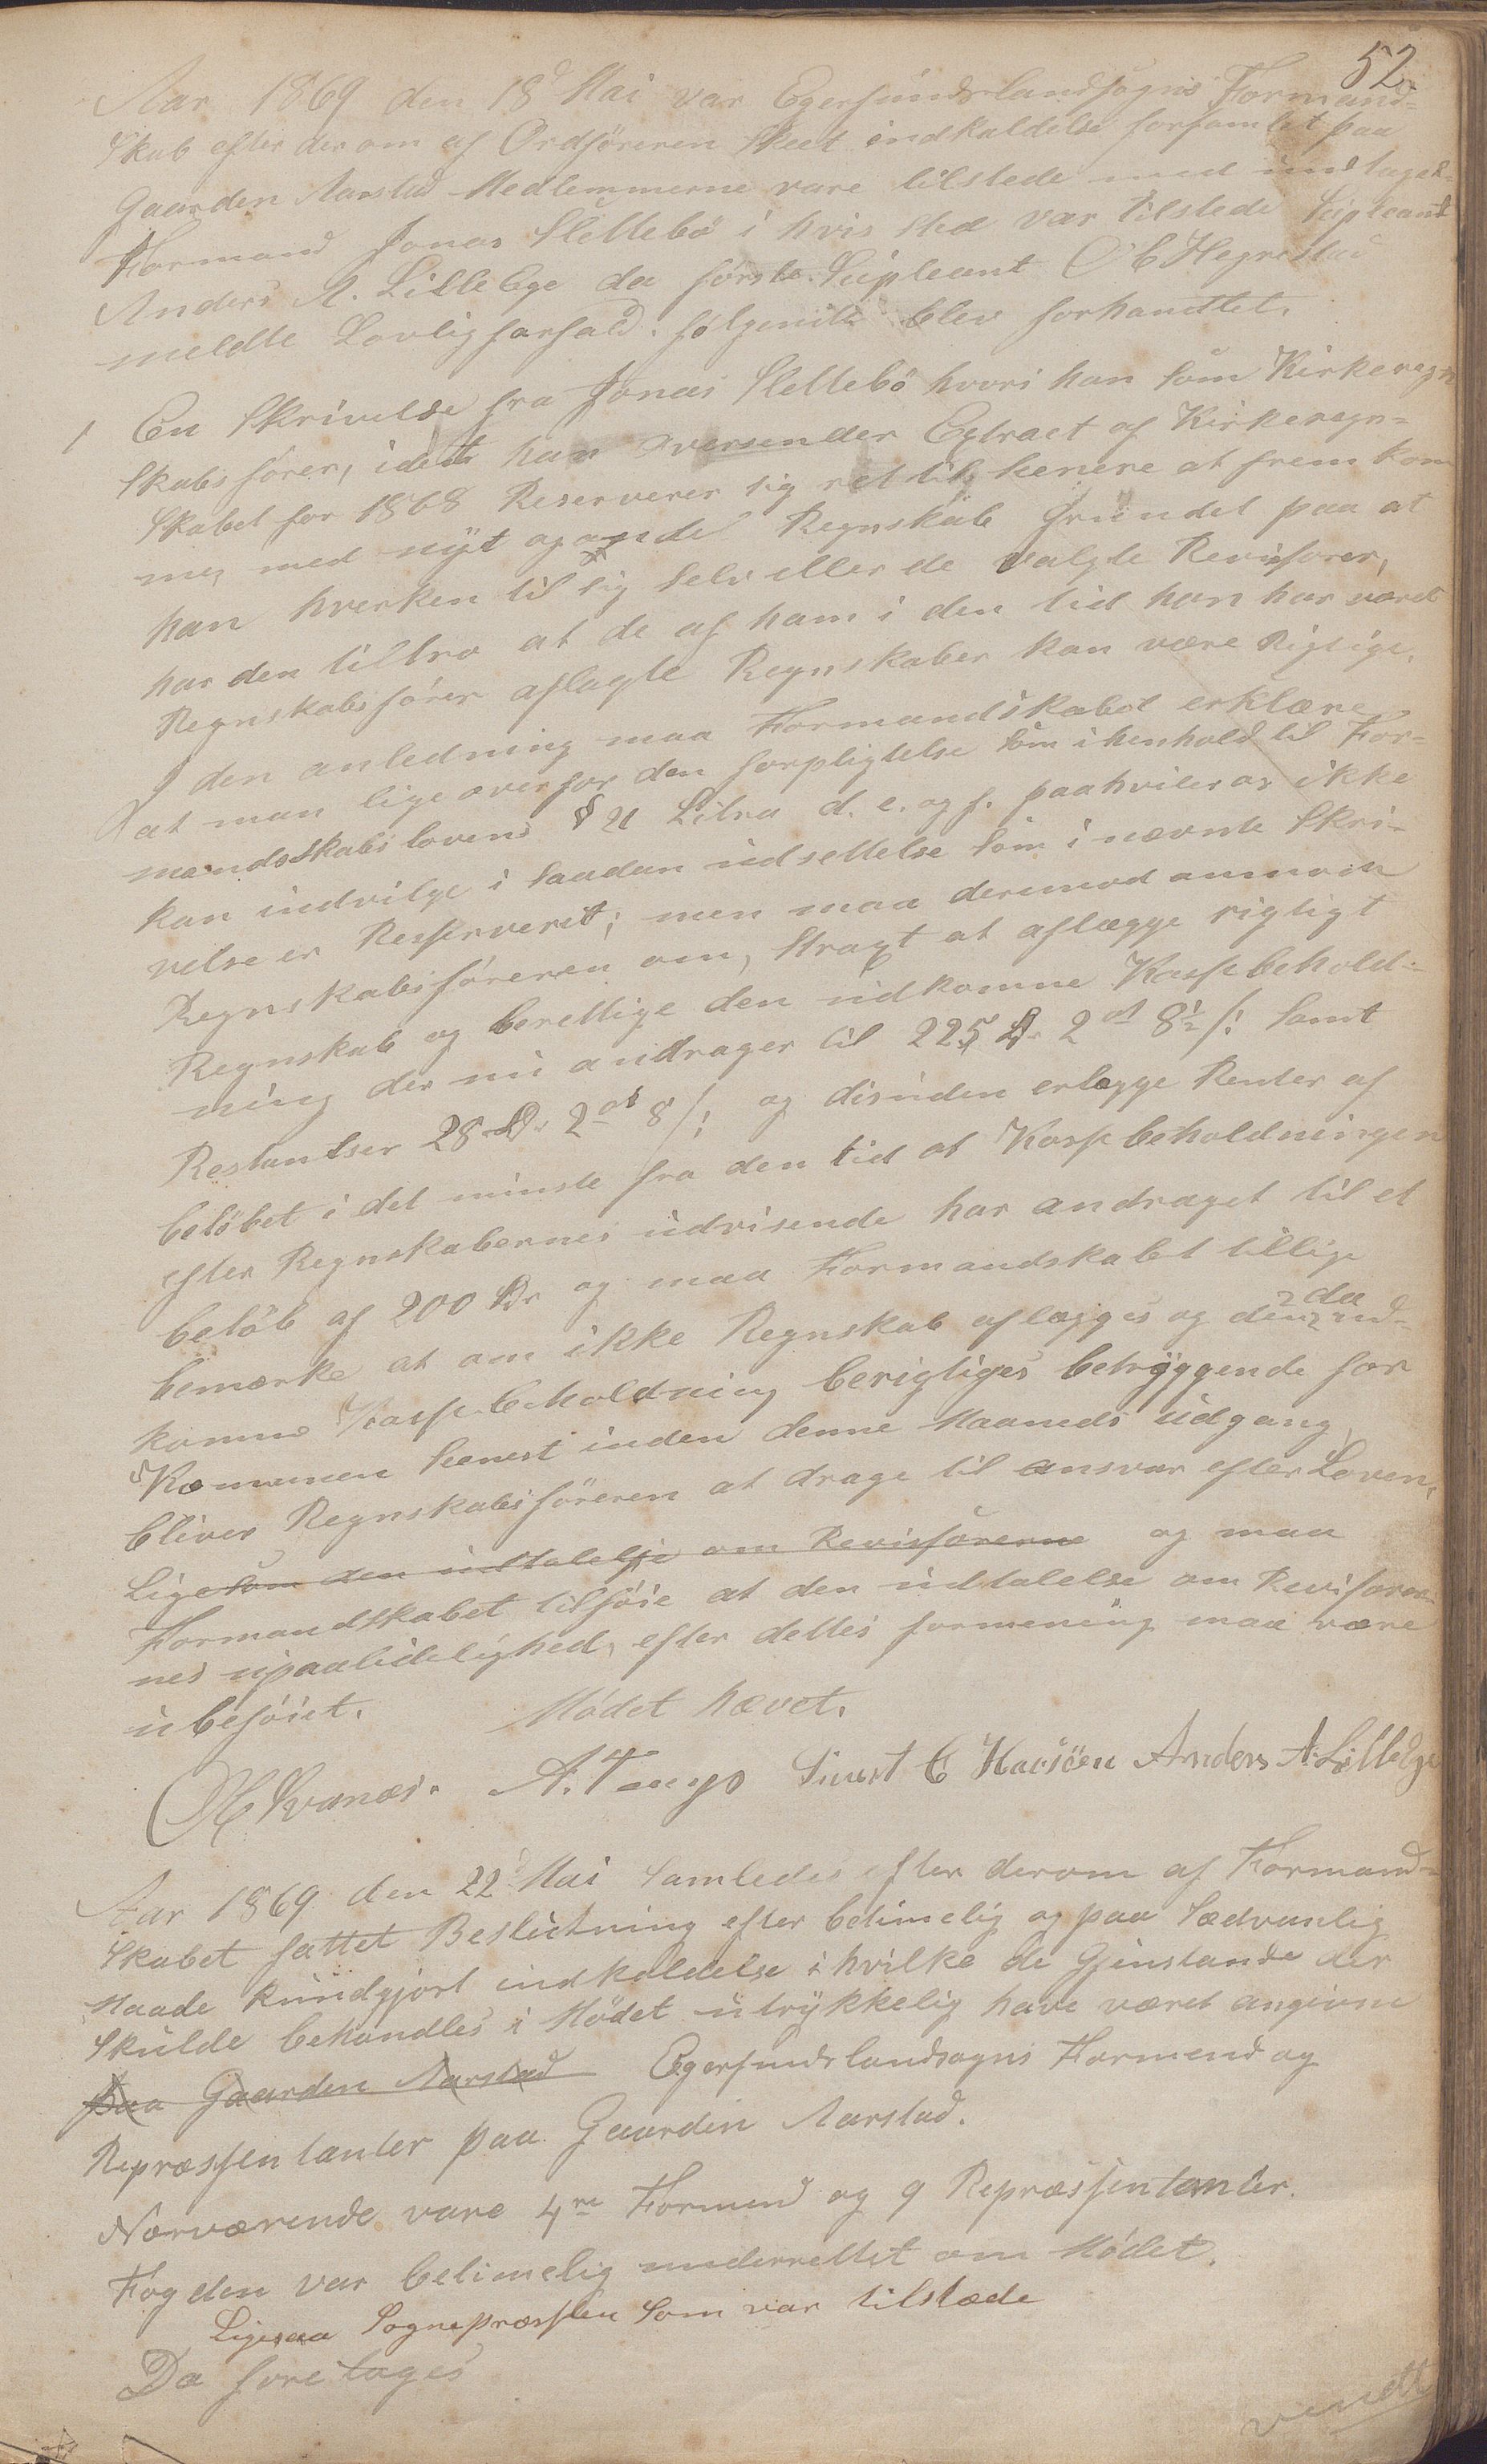 52.
Aar 1869 den 18d Mai var Egersunds landsogns Formand-
skab efter derom af Ordföreren skeet indkaldelse forsamlet paa
Gaarden Aarstad Medlemmerne vare tilstede med undtagel-
Formand Jonas Slettebö i hvis sted var tilstede Supleant
Anders A. Lille Ege da förste Supleant O E Hegrestad
meldte Lovlig forfald. fölgende blev forhandtlet.
1 En Skrivelse fra Jonas Slettebö hvori han som Kirkeregn
skabsförer, idet han oversender Extract af Kirkeregn-
skabet for 1868 Reserverer sig ret til senere at frem kom
me, med nyt og andet Regnskab grundet paa at
han hverken til sig selv eller de valgte Revisorer,
har den tiltro at de af ham i den tid han har været
Regnskabsförer aflagte Regnskaber kan være Rigtige.
I den anledning maa Formandskabet erklære
at man lige overfor den forpligtelse som i henhold til For-
mandsskabs lovens § 21 Litra d. e. og f. paahviler os ikke
kan indvilge i saadan udsettelse som i nævnte Skri-
velse er Resserveret; men maa derimod anmode
Regnskabsföreren om, Straxt at aflægge rigtigt
Regnskab og berettige den udkomne Kassebehold-
ning der nu andrager til 225 D. 2 ort 8½ s: samt
Restantser 28 D. 2 ort 8 s: og disuden erlægge Renter af
belöbet i det minste fra den tid at Kassebeholdningen
efter Regnskabernes udvisende har andraget til et
belöb af 200 Dr og maa Formandskabet tillige
bemærke at om ikke Regnskab aflægges og den da ud-
komne Kassebeholdning berigtiges betryggende for
Komunen senest inden denne Maaneds udgang
bliver Regnskabsföreren at drage til ansvar efter Loven,
Ligesom den udtalelse om Revisörerne og maa
Formandskabet tilföie at den udtalelse om Revisorer
nes upaalidelighed, efter dettes formening maa være
ubeföiet. Mödet hævet.
A. Tengs Sivert E Havsöen Anders A. LilleEge
Aar 1869 den 22d Mai samledes efter derom af Formand-
skabet fattet Beslutning efter betimelig og paa sædvanlig
Maade kundgjort indkaldelse i hvilke de Gjenstande der
skulde behandles i Mödet utrykkelig have været angivne
paa Gaarden Aarstad Egersunds landsogns Formend og
Repræssentanter paa Gaarden Aarstad.
Nærværende vare 4re Formend og 9 Repræssentanter.
Fogden var betimelig underrettet om Mödet.
Ligesaa Sognepræsten som var tilstæde
Da foretoges